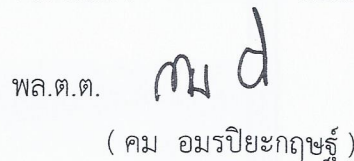 พล.ต.ต.
( คม อมรปิยะกฤษฐ์ )